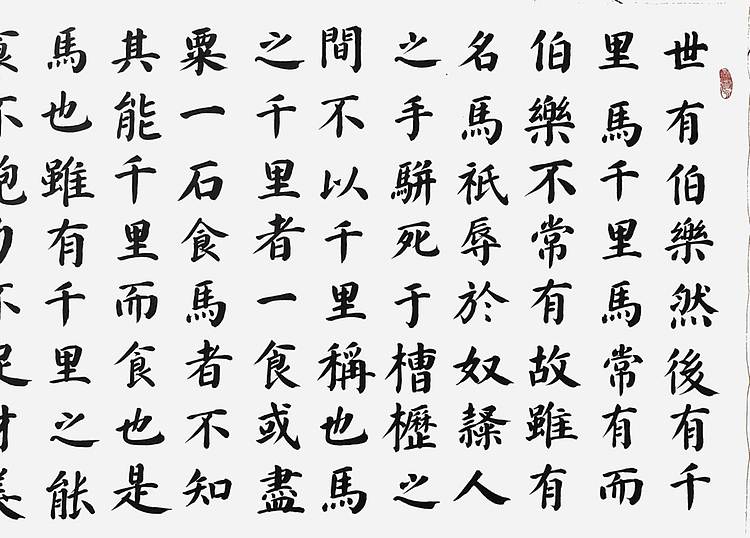 世有伯樂然後有千
里馬千里馬常有而
伯樂不常有故雖有
名馬祇辱於奴隸人
之手駢死于槽櫪之
間不以千里稱也馬
之千里者一食或盡
粟一石食馬者不知
其能千里而食也是
馬也雖有千里之能
食不飽力不足材美